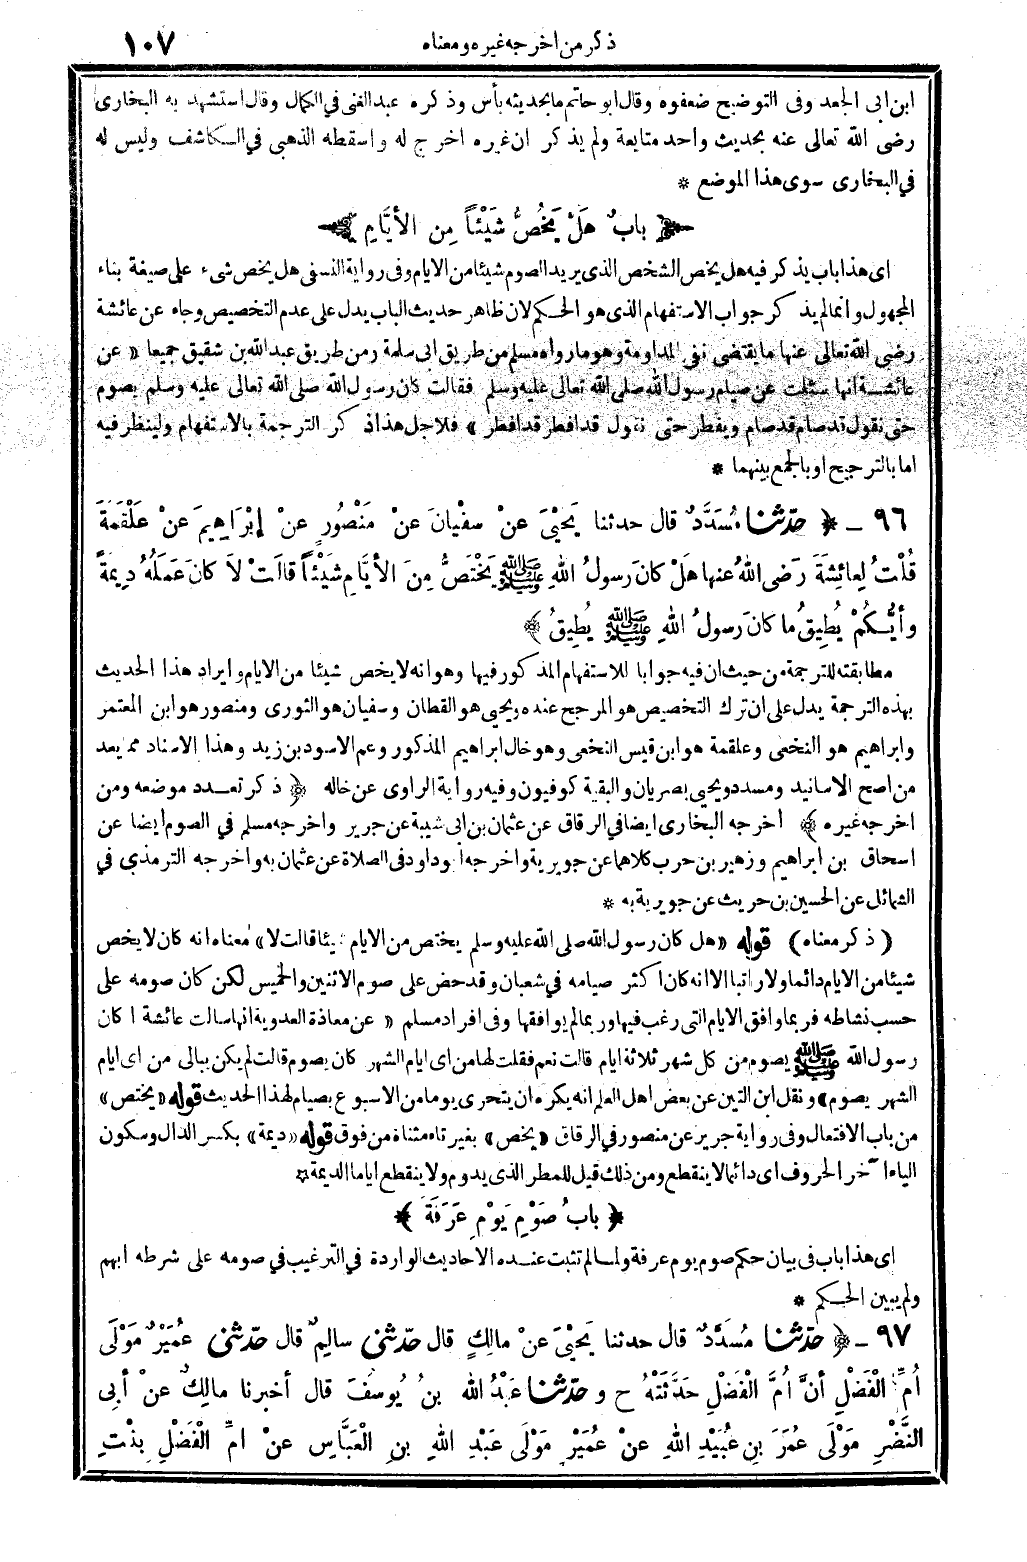 ذكر من اخرجه غيره ومعناه ١٠٧
ابن ابى الجعد وفى التوضيح ضعفوه وقال ابو حاتم ما بحديثه بأس وذكره عبد الغنى في الكمال وقال استشهد به البخارى
رضى الله تعالى عنه بحديث واحد متابعة ولم يذكر ان غيره اخرج له واسقطه الذهبى في الكاشف وليس له
في البخارى سوى هذا الموضع *
﴿ بابٌ هَلْ يَخُصُّ شَيْئاً مِنَ الأَيَّامِ ﴾
اى هذا باب يذكر فيه هل يخص الشخص الذى يريد الصوم شيئا من الايام وفى رواية النسفى هل يخص شىء على صيغة بناء
المجهول وانمالم يذكر جواب الاستفهام الذى هو الحكم لان ظاهر حديث الباب يدل على عدم التخصيص وجاء عن عائشة
رضى الله تعالى عنها ما يقتضى نفى المداومة وهو ما رواه مسلم من طريق ابى سلمة ومن طريق عبد الله بن شقيق جميعا « عن
عائشة انها سئلت عن صيام رسول الله صلى الله تعالى عليه وسلم فقالت كان رسول الله صلى الله تعالى عليه وسلم يصوم
حتى نقول قد صام قد صام ويفطر حتى نقول قد افطر قد افطر » فلاجل هذا ذكر الترجمة بالاستفهام ولينظر فيه
اما بالترجيح او بالجمع بينهما *
٩٦ - ﴿ حَدَّثَنَا مُسَدَّدٌ قال حدثنا يَحْيَى عنْ سفْيانَ عنْ مَنْصُورٍ عنْ إبْرَاهِيمَ عنْ عَلْقَمَةَ
قُلْتُ لِعائِشَةَ رَضى اللهُ عنها هَلْ كان رسولُ اللهِ ﷺ يَخْتَصُّ مِنَ الأَيَّامِ شَيْئاً قالَتْ لاَ كانَ عَمَلُهُ دِيمَةً
وأيُّكُمْ يُطِيقُ ما كانَ رسولُ اللهِ ﷺ يُطِيقُ ﴾
مطابقته للترجمة من حيث ان فيه جوابا للاستفهام المذكور فيها وهو انه لا يخص شيئا من الايام وايراد هذا الحديث
بهذه الترجمة يدل على ان ترك التخصيص هو المرجح عنده ويحيى هو القطان وسفيان هو الثورى ومنصور هو ابن المعتمر
وابراهيم هو النخعى وعلقمة هو ابن قيس النخعى وهو خال ابراهيم المذكور وعم الاسود بن زيد وهذا الاسناد مما يعد
من اصح الاسانيد ومسدد ويحيى بصريان والبقية كوفيون وفيه رواية الراوى عن خاله ﴿ ذكر تعدد موضعه ومن
اخرجه غيره ﴾ أخرجه البخارى ايضا في الرقاق عن عثمان بن ابى شيبة عن جرير واخرجه مسلم في الصوم ايضا عن
اسحاق بن ابراهيم وزهير بن حرب كلاهما عن جويرية واخرجه ابوداود فى الصلاة عن عثمان به واخرجه الترمذى في
الشمائل عن الحسين بن حريث عن جويرية به *
( ذكر معناه ) قوله « هل كان رسول الله صلى الله عليه وسلم يختص من الايام شيئا قالت لا » معناه انه كان لا يخص
شيئا من الايام دائما ولا راتبا الا انه كان اكثر صيامه في شعبان وقد حض على صوم الاثنين والخميس لكن كان صومه على
حسب نشاطه فربما وافق الايام التى رغب فيها وربما لم يوافقها وفى افراد مسلم « عن معاذة العدوية انها سالت عائشة اكان
رسول الله ﷺ يصوم من كل شهر ثلاثة ايام قالت نعم فقلت لها من اى ايام الشهر كان يصوم قالت لم يكن يبالى من اى ايام
الشهر يصوم » ونقل ابن التين عن بعض اهل العلم انه يكره ان يتحرى يوما من الاسبوع بصيام لهذا الحديث قوله « يختص »
من باب الافتعال وفى رواية جرير عن منصور في الرقاق « يخص » بغير تاء مثناة من فوق قوله « ديمة » بكسر الدال وسكون
الياء آخر الحروف اى دائما لا ينقطع ومن ذلك قيل للمطر الذى يدوم ولا ينقطع اياما الديمة *
﴿ بابُ صَوْمِ يَوْمِ عَرَفَةَ ﴾
اى هذا باب فى بيان حكم صوم يوم عرفة ولما لم تثبت عنده الاحاديث الواردة في الترغيب في صومه على شرطه ابهم
ولم يبين الحكم *
٩٧ - ﴿ حَدَّثَنَا مُسَدَّدٌ قال حدثنا يَحْيَى عنْ مالِكٍ قال حَدَّثَنى سالِمٌ قال حَدَّثَنى عُمَيْرٌ مَوْلَى
أُمِّ الْفَضْلِ أنَّ أُمَّ الْفَضْلِ حَدَّثَتْهُ ح و حَدَّثَنَا عَبْدُ الله بنُ يُوسُفَ قال أخبرنا مالِكٌ عنْ أبى
النَّضْرِ مَوْلَى عُمَرَ بنِ عُبَيْدِ اللهِ عنْ عُمَيْرٍ مَوْلَى عَبْدِ اللهِ بنِ العَبَّاسِ عنْ امِّ الْفَضْلِ بِنْتِ